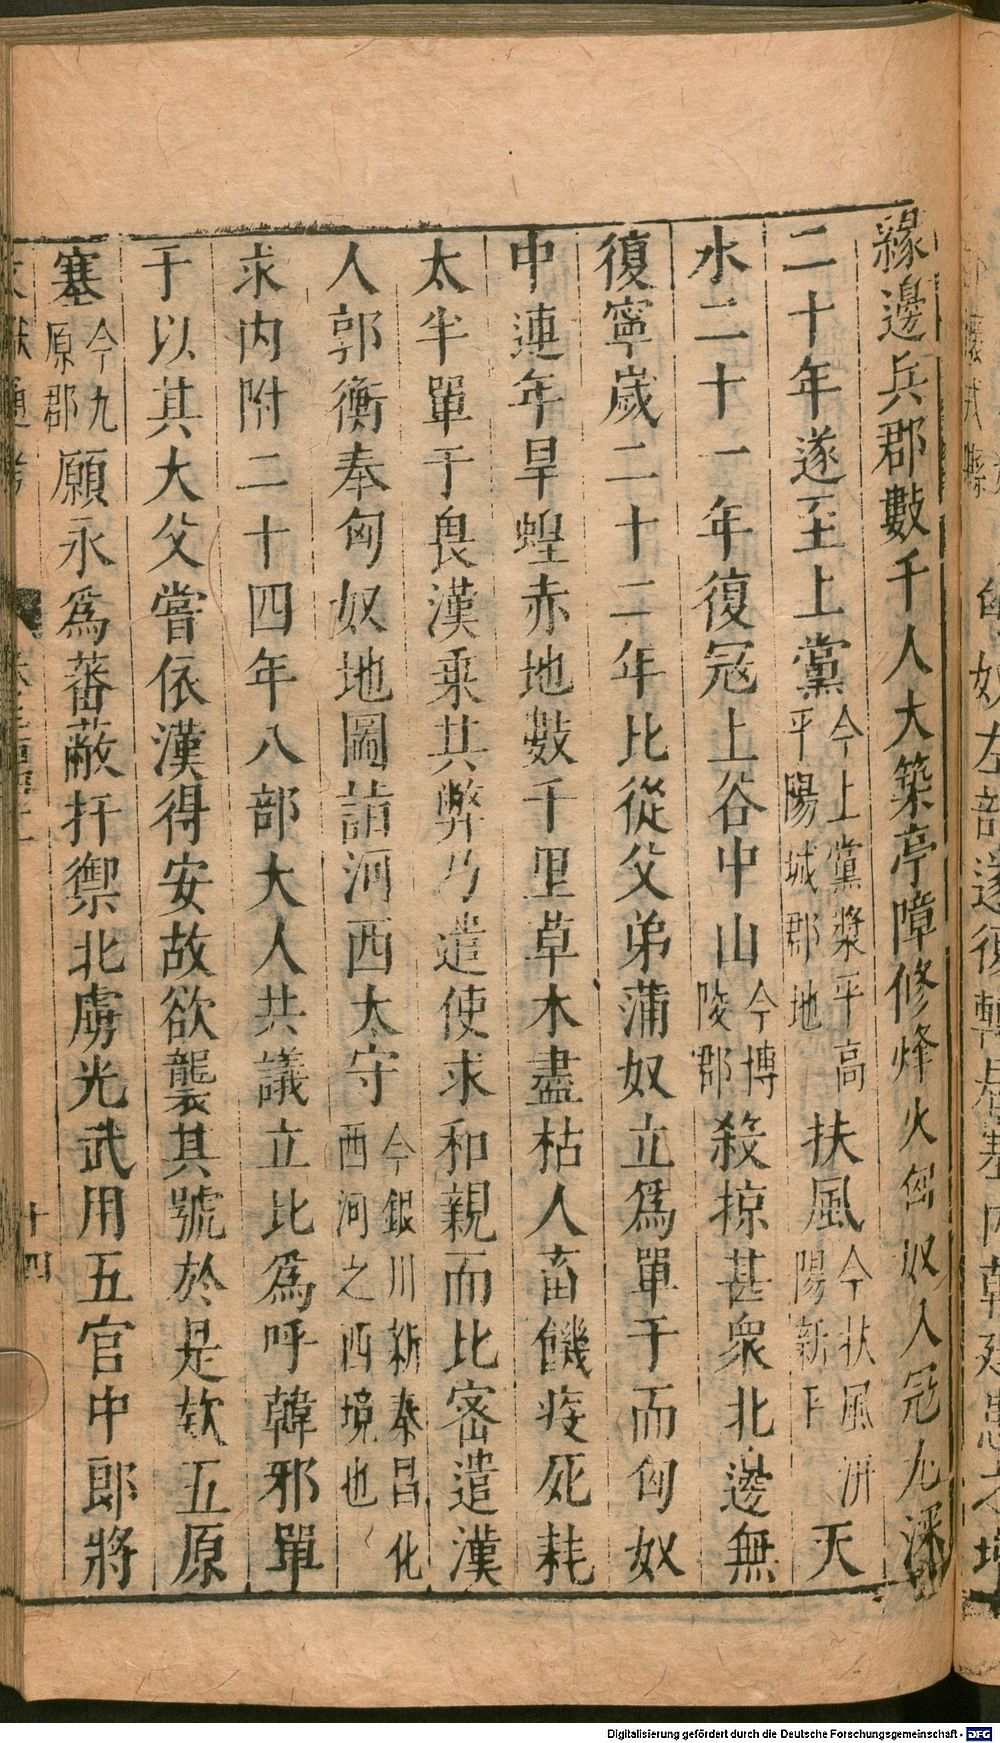 緣邊兵郡數千人大築亭障修烽火匈奴入寇尤深
二十年遂至上黨今上黨漿平高平陽城郡地扶風今扶風汧陽新平天
水二十一年復寇上谷中山今博陵郡殺掠甚衆北邊無
復寧歲二十二年比從父弟蒲奴立爲單于而匈奴
中連年旱蝗赤地數千里草木盡枯人畜饑疫死耗
太半單于畏漢乘其弊乃遣使求和親而比密遣漢
人郭衡奉匈奴地圖詣河西太守今銀川新秦昌化西河之西境也
求内附二十四年八部大人共議立比爲呼韓邪單
于以其大父嘗依漢得安故欲襲其號於是欵五原
塞今九原郡願永爲蕃蔽扞禦北虜光武用五官中郎將
十四
Digitalisierung gefördert durch die Deutsche Forschungsgemeinschaft - DFG